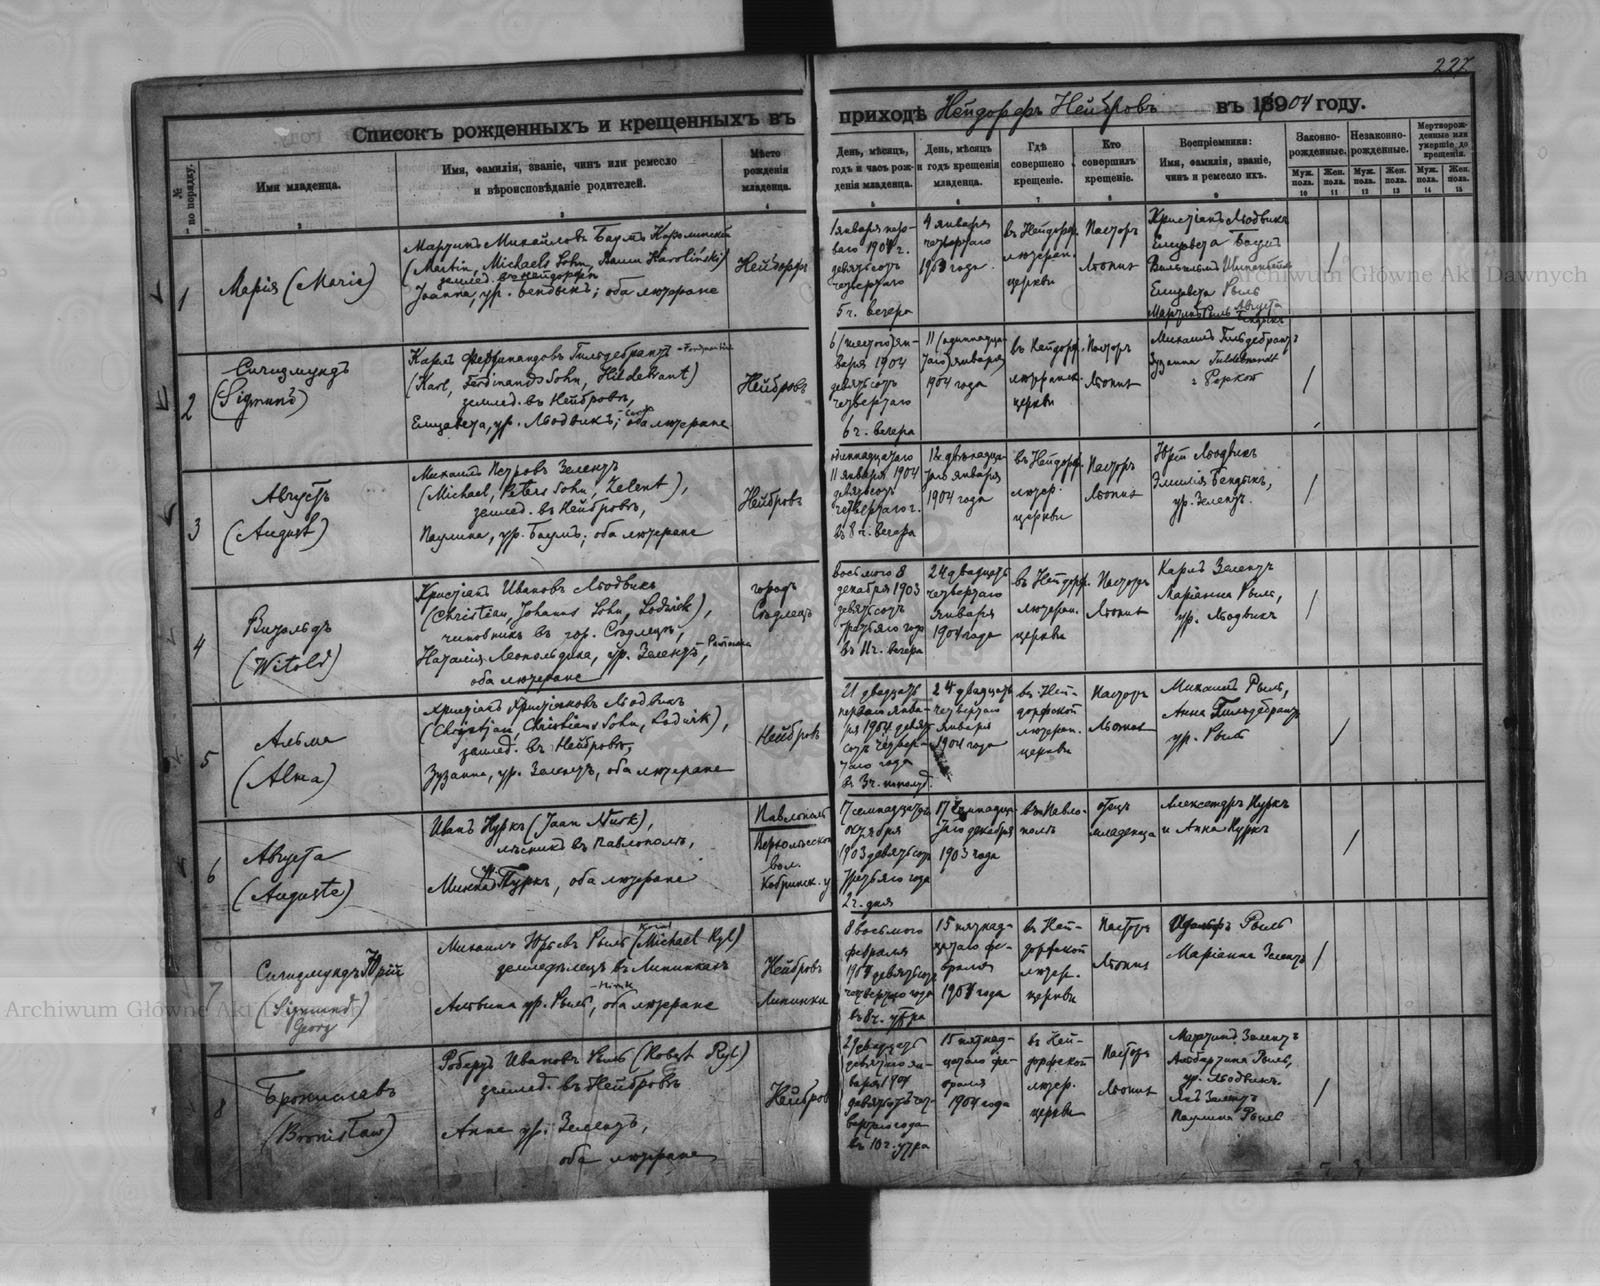 227
Списокъ рожденныхъ и крещенныхъ въ приходѣ Нейдорфъ Нейбровъ въ 1904 году.
№ по порядку.
Имя младенца.
Имя, фамилія, званіе, чинъ или ремесло
и вѣроисповѣданіе родителей.
Мѣсто
рожденія
младенца.
День, мѣсяцъ,
годъ и часъ рож-
денія младенца.
День, мѣсяцъ
и годъ крещенія
младенца.
Гдѣ
совершено
крещеніе.
Кто
совершилъ
крещеніе.
Воспріемники:
Имя, фамилія, званіе,
чинъ и ремесло ихъ.
Законно-
рожденные.
Незаконно-
рожденные.
Мертворож-
денные или
умершіе до
крещенія.
Муж. пола.
Жен. пола.
Муж. пола.
Жен. пола.
Муж. пола.
Жен. пола.
1 2 3 4 5 6 7 8 9 10 11 12 13 14 15
1
Марія (Marie)
Мартинъ Михайловъ Баумъ Каролинскій
(Martin, Michaels Sohn, Baum Karoliński)
землед. въ Нейдорфѣ
Іоанна, ур. Бендыкъ; оба лютеране
Нейдорфъ
1 января пер-
ваго 1904 г.
девятьсотъ
четвертаго
5 ч. вечера
4 января
четвертаго
1904 года.
въ Нейдорф.
лютеран.
церкви
Пасторъ
Христіанъ Людвикъ
Елизавета Баумъ
Елизавета Рыль
2
Сигизмундъ
(Sigmund)
Карлъ Фердинандовъ Гильдебрантъ
(Karl, Ferdinands Sohn, Hildebrant)
землед. въ Нейбровѣ,
Елизавета, ур. Людвикъ; оба лютеране
Нейбровъ
6 (шестого) ян-
варя 1904
девятьсотъ
четвертаго
6 ч. вечера
11 (одиннадца-
таго) января
1904 года
въ Нейдорф.
лютеранск.
церкви
Пасторъ
Михаилъ Гильдебрантъ
Зузанна Hildebrandt
3
Августъ
(August)
Михаилъ Петровъ Зелентъ
(Michael, Peters Sohn, Zelent),
землед. въ Нейбровѣ,
Паулина, ур. Баумъ; оба лютеране
Нейбровъ
одиннадцатаго
11 января 1904
девятьсотъ
четвертаго г.
въ 8 ч. вечера
12 двѣнадца-
таго января
1904 года
въ Нейдорф.
лютер.
церкви
Пасторъ
Юрій Людвикъ
Эмилія Бендыкъ,
ур. Зелентъ.
4
Витольдъ
(Witold)
Христіанъ Ивановъ Людвикъ
(Christian, Johanns Sohn, Lodwick),
чиновникъ въ гор. Сѣдлецѣ,
Наталія Леопольдина, ур. Зелентъ,
оба лютеране
городъ
Сѣдлецъ
восьмого 8
декабря 1903
девятьсотъ
третьяго года
въ 11 ч. вечера
24 двадцать
четвертаго
января
1904 года
въ Нейдорф.
лютеран.
церкви
Пасторъ
Карлъ Зелентъ
Маріанна Рыль,
ур. Людвикъ
5
Альма
(Alma)
Христіанъ Христіановъ Людвикъ
(Chrystjan, Christians Sohn, Lodwik),
землед. въ Нейбровѣ,
Зузанна, ур. Зелентъ, оба лютеране
Нейбровъ
21 двадцать
перваго янва-
ря 1904 девять-
сотъ четвер-
таго года
въ 3 ч. пополуд.
24 двадцать
четвертаго
января
1904 года
въ Ней-
дорфской
лютеран.
церкви
Пасторъ
Михаилъ Рыль,
Анна Гильдебрантъ
ур. Рыль
6
Августа
(Auguste)
Иванъ Нуркъ (Jaan Nurk),
лѣсникъ въ Павлополѣ,
Минна Нуркъ, оба лютеране
Павлополь
вол.
Кобринск. у
17 семнадцатаго
октября
1903 девятьсотъ
третьяго года
2 ч. дня
1903 года
въ Павло-
полѣ
отецъ
младенца
Александръ Нуркъ
и Анна Нуркъ
7
Сигизмундъ Юрій
(Sigmund
Georg)
Михаилъ Юрьевъ Рыль (Michael Ryl)
земледѣлецъ въ Липинкахъ
Альвина ур. Рыль, оба лютеране
Нейбровъ
Липинки
8 восьмого
февраля
1904 девятьсотъ
четвертаго года
въ 8 ч. утра
15 пятнад-
цатаго фе-
враля
1904 года
въ Ней-
дорфской
лютер.
церкви
Пасторъ
Адольфъ Рыль
Маріанна Зелентъ
8
Брониславъ
(Bronisław)
Робертъ Ивановъ Рыль (Robert Ryl)
землед. въ Нейбровѣ
Анна ур. Зелентъ,
оба лютеране
Нейбровъ
29 двадцать
девятаго ян-
варя 1904
девятьсотъ чет-
вертаго года
въ 10 ч. утра
15 пятнад-
цатаго фе-
враля
1904 года
въ Ней-
дорфской
лютер.
церкви
Пасторъ
Мартинъ Зелентъ
Альбертина Рыль,
ур. Людвикъ.
Янъ Зелентъ
Паулина Рыль
Archiwum Główne Akt Dawnych
Archiwum Główne Akt Dawnych